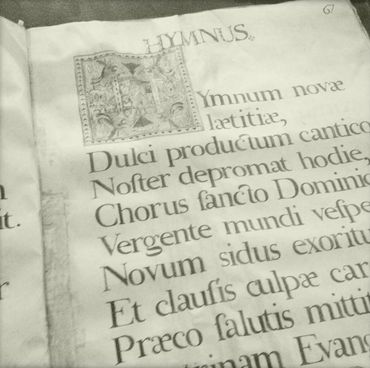 HYMNUS.
HYmnum novæ
lætitiæ,
Dulci productum cantico
Noſter depromat hodie,
Chorus ſancto Dominic
Vergente mundi veſpe
Novum sidus exoritu
Et clauſis culpæ car
Præco ſalutis mittit
trinam Evang
it.